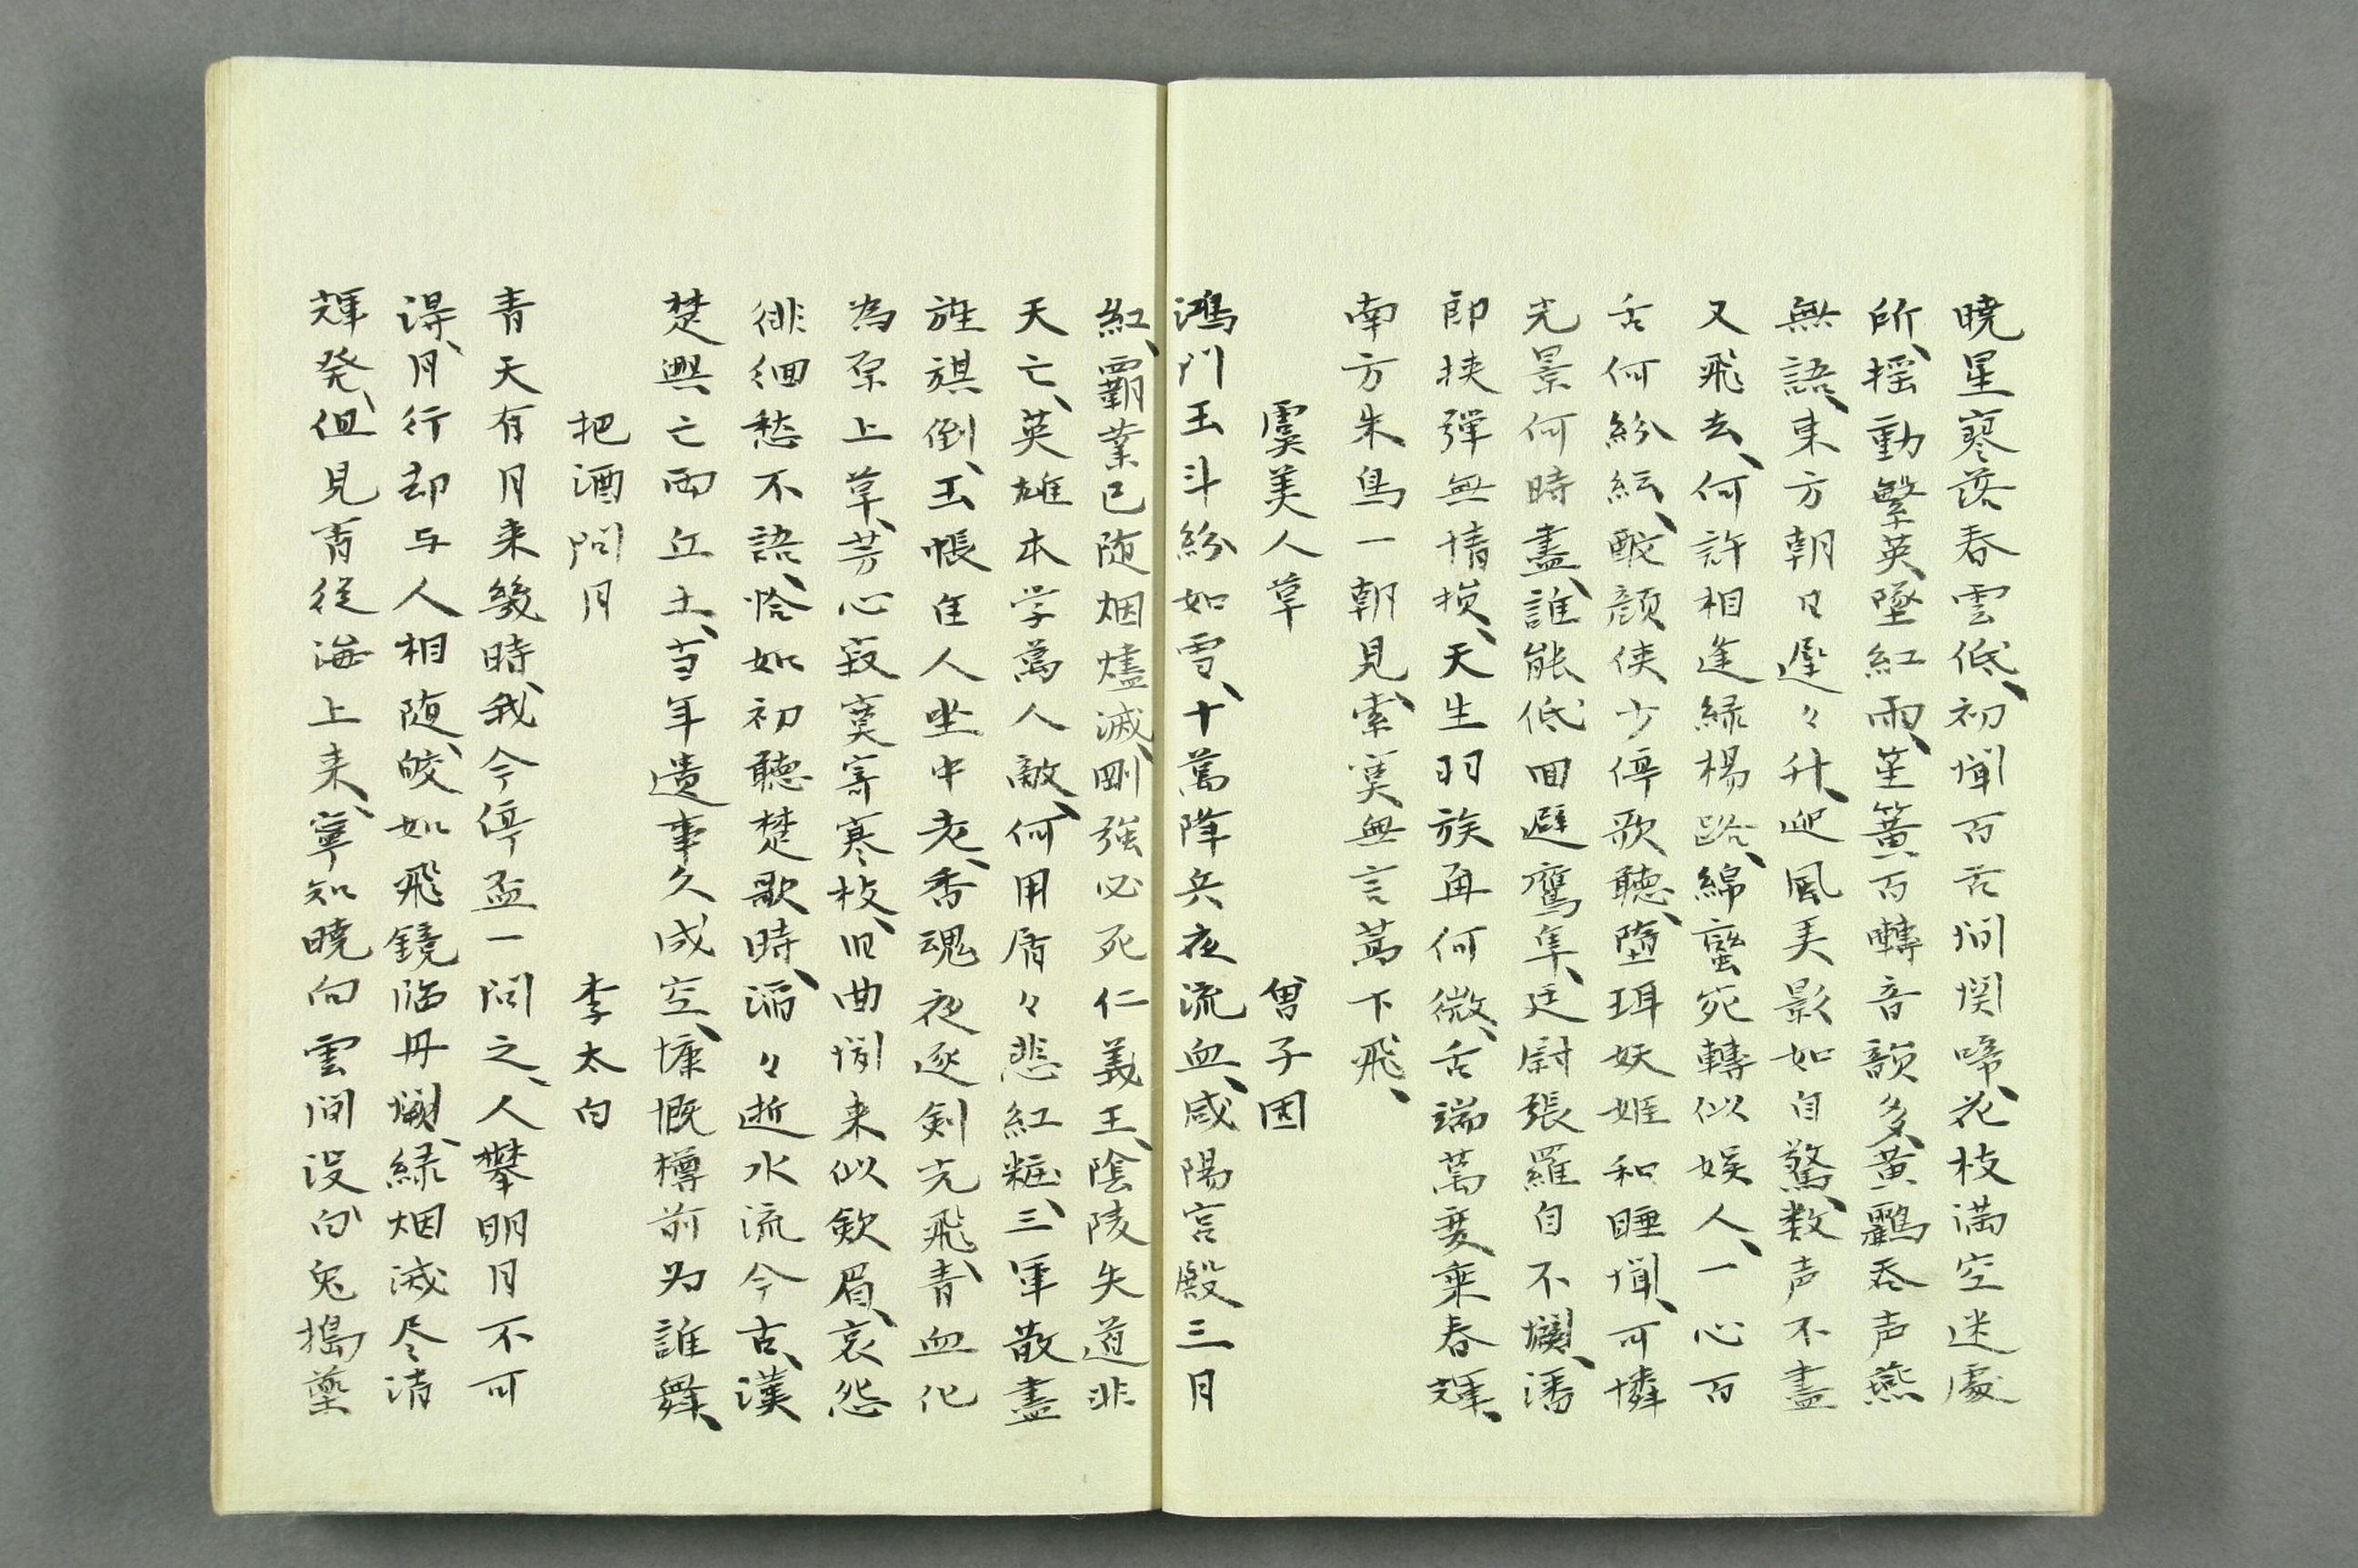 暁星寥落春雲低、初聞百舌間関啼、花枝満空迷處
所、揺動繁英墜紅雨、笙簧百囀音韻多、黄鸝吞声燕
無語、東方朝日遅々升、迎風美影如自驚、数声不盡
又飛去、何許相逢緑楊路、綿蛮宛轉似娯人、一心百
舌何紛紜、酡顔侠少停歌聴、堕珥妖姫和睡聞、可憐
光景何時盡、誰能低回避鷹隼、廷尉張羅自不関、潘
郎挟弾無情損、天生羽族再何微、舌端萬変乗春輝、
南方朱鳥一朝見、索寞無言蒿下飛、
虞美人草　曽子固
鴻門玉斗紛如雪、十萬降兵夜流血、咸陽宮殿三月
紅、覇業已随烟燼滅、剛強必死仁義王、陰陵失道非
天亡、英雄本学萬人敵、何用屑々悲紅粧、三軍散盡
旌旗倒、玉帳佳人坐中老、香魂夜逐剣光飛、青血化
為原上草、芳心寂寞寄寒枝、旧曲聞来似斂眉、哀怨
徘徊愁不語、恰如初聴楚歌時、滔々逝水流今古、漢
楚興亡両丘土、当年遺事久成空、慷慨樽前为誰舞、
把酒問月　李太白
青天有月来幾時、我今停盃一問之、人攀明月不可
得、月行却与人相随、皎如飛鏡臨丹闕、緑烟滅尽清
輝発、但見宵従海上来、寧知暁向雲間没、白兎搗薬